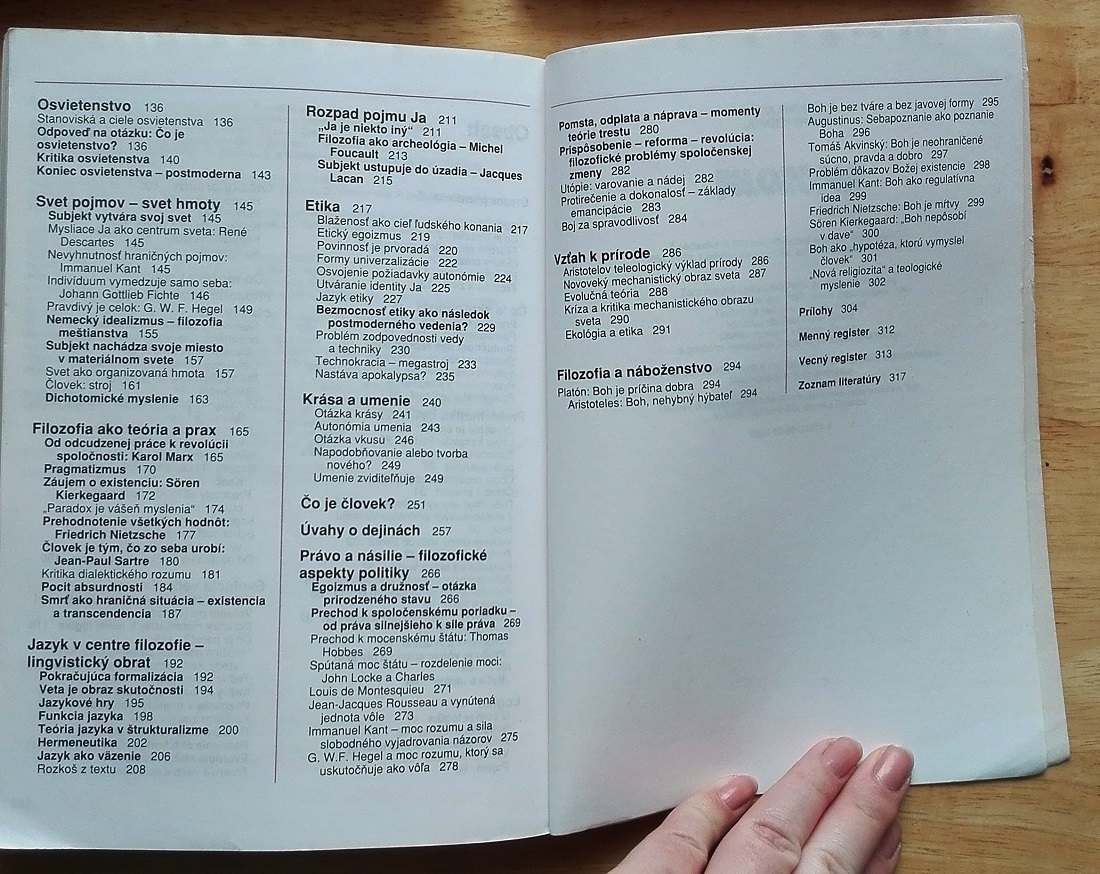 Osvietenstvo 136
Stanoviská a ciele osvietenstva 136
Odpoveď na otázku: Čo je
osvietenstvo? 136
Kritika osvietenstva 140
Koniec osvietenstva – postmoderna 143
Svet pojmov – svet hmoty 145
Subjekt vytvára svoj svet 145
Mysliace Ja ako centrum sveta: René
Descartes 145
Nevyhnutnosť hraničných pojmov:
Immanuel Kant 145
Indivíduum vymedzuje samo seba:
Johann Gottlieb Fichte 146
Pravdivý je celok: G. W. F. Hegel 149
Nemecký idealizmus – filozofia
meštianstva 155
Subjekt nachádza svoje miesto
v materiálnom svete 157
Svet ako organizovaná hmota 157
Človek: stroj 161
Dichotomické myslenie 163
Filozofia ako teória a prax 165
Od odcudzenej práce k revolúcii
spoločnosti: Karol Marx 165
Pragmatizmus 170
Záujem o existenciu: Sören
Kierkegaard 172
„Paradox je vášeň myslenia“ 174
Prehodnotenie všetkých hodnôt:
Friedrich Nietzsche 177
Človek je tým, čo zo seba urobí:
Jean-Paul Sartre 180
Kritika dialektického rozumu 181
Pocit absurdnosti 184
Smrť ako hraničná situácia – existencia
a transcendencia 187
Jazyk v centre filozofie –
lingvistický obrat 192
Pokračujúca formalizácia 192
Veta je obraz skutočnosti 194
Jazykové hry 195
Funkcia jazyka 198
Teória jazyka v štrukturalizme 200
Hermeneutika 202
Jazyk ako väzenie 206
Rozkoš z textu 208
Rozpad pojmu Ja 211
„Ja je niekto iný“ 211
Filozofia ako archeológia – Michel
Foucault 213
Subjekt ustupuje do úzadia – Jacques
Lacan 215
Etika 217
Blaženosť ako cieľ ľudského konania 217
Etický egoizmus 219
Povinnosť je prvoradá 220
Formy univerzalizácie 222
Osvojenie požiadavky autonómie 224
Utváranie identity Ja 225
Jazyk etiky 227
Bezmocnosť etiky ako následok
postmoderného vedenia? 229
Problém zodpovednosti vedy
a techniky 230
Technokracia – megastroj 233
Nastáva apokalypsa? 235
Krása a umenie 240
Otázka krásy 241
Autonómia umenia 243
Otázka vkusu 246
Napodobňovanie alebo tvorba
nového? 249
Umenie zviditeľňuje 249
Čo je človek? 251
Úvahy o dejinách 257
Právo a násilie – filozofické
aspekty politiky 266
Egoizmus a družnosť – otázka
prirodzeného stavu 266
Prechod k spoločenskému poriadku –
od práva silnejšieho k sile práva 269
Prechod k mocenskému štátu: Thomas
Hobbes 269
Spútaná moc štátu – rozdelenie moci:
John Locke a Charles
Louis de Montesquieu 271
Jean-Jacques Rousseau a vynútená
jednota vôle 273
Immanuel Kant – moc rozumu a sila
slobodného vyjadrovania názorov 275
G. W.F. Hegel a moc rozumu, ktorý sa
uskutočňuje ako vôľa 278
Pomsta, odplata a náprava – momenty
teórie trestu 280
Prispôsobenie – reforma – revolúcia:
filozofické problémy spoločenskej
zmeny 282
Utópie: varovanie a nádej 282
Protirečenie a dokonalosť – základy
emancipácie 283
Boj za spravodlivosť 284
Vzťah k prírode 286
Aristotelov teleologický výklad prírody 286
Novoveký mechanistický obraz sveta 287
Evolučná teória 288
Kríza a kritika mechanistického obrazu
sveta 290
Ekológia a etika 291
Filozofia a náboženstvo 294
Platón: Boh je príčina dobra 294
Aristoteles: Boh, nehybný hýbateľ 294
Boh je bez tváre a bez javovej formy 295
Augustinus: Sebapoznanie ako poznanie
Boha 296
Tomáš Akvinský: Boh je neohraničené
súcno, pravda a dobro 297
Problém dôkazov Božej existencie 298
Immanuel Kant: Boh ako regulatívna
idea 299
Friedrich Nietzsche: Boh je mŕtvy 299
Sören Kierkegaard: „Boh nepôsobí
v dave“ 300
Boh ako „hypotéza, ktorú vymyslel
človek“ 301
„Nová religiozita“ a teologické
myslenie 302
Prílohy 304
Menný register 312
Vecný register 313
Zoznam literatúry 317